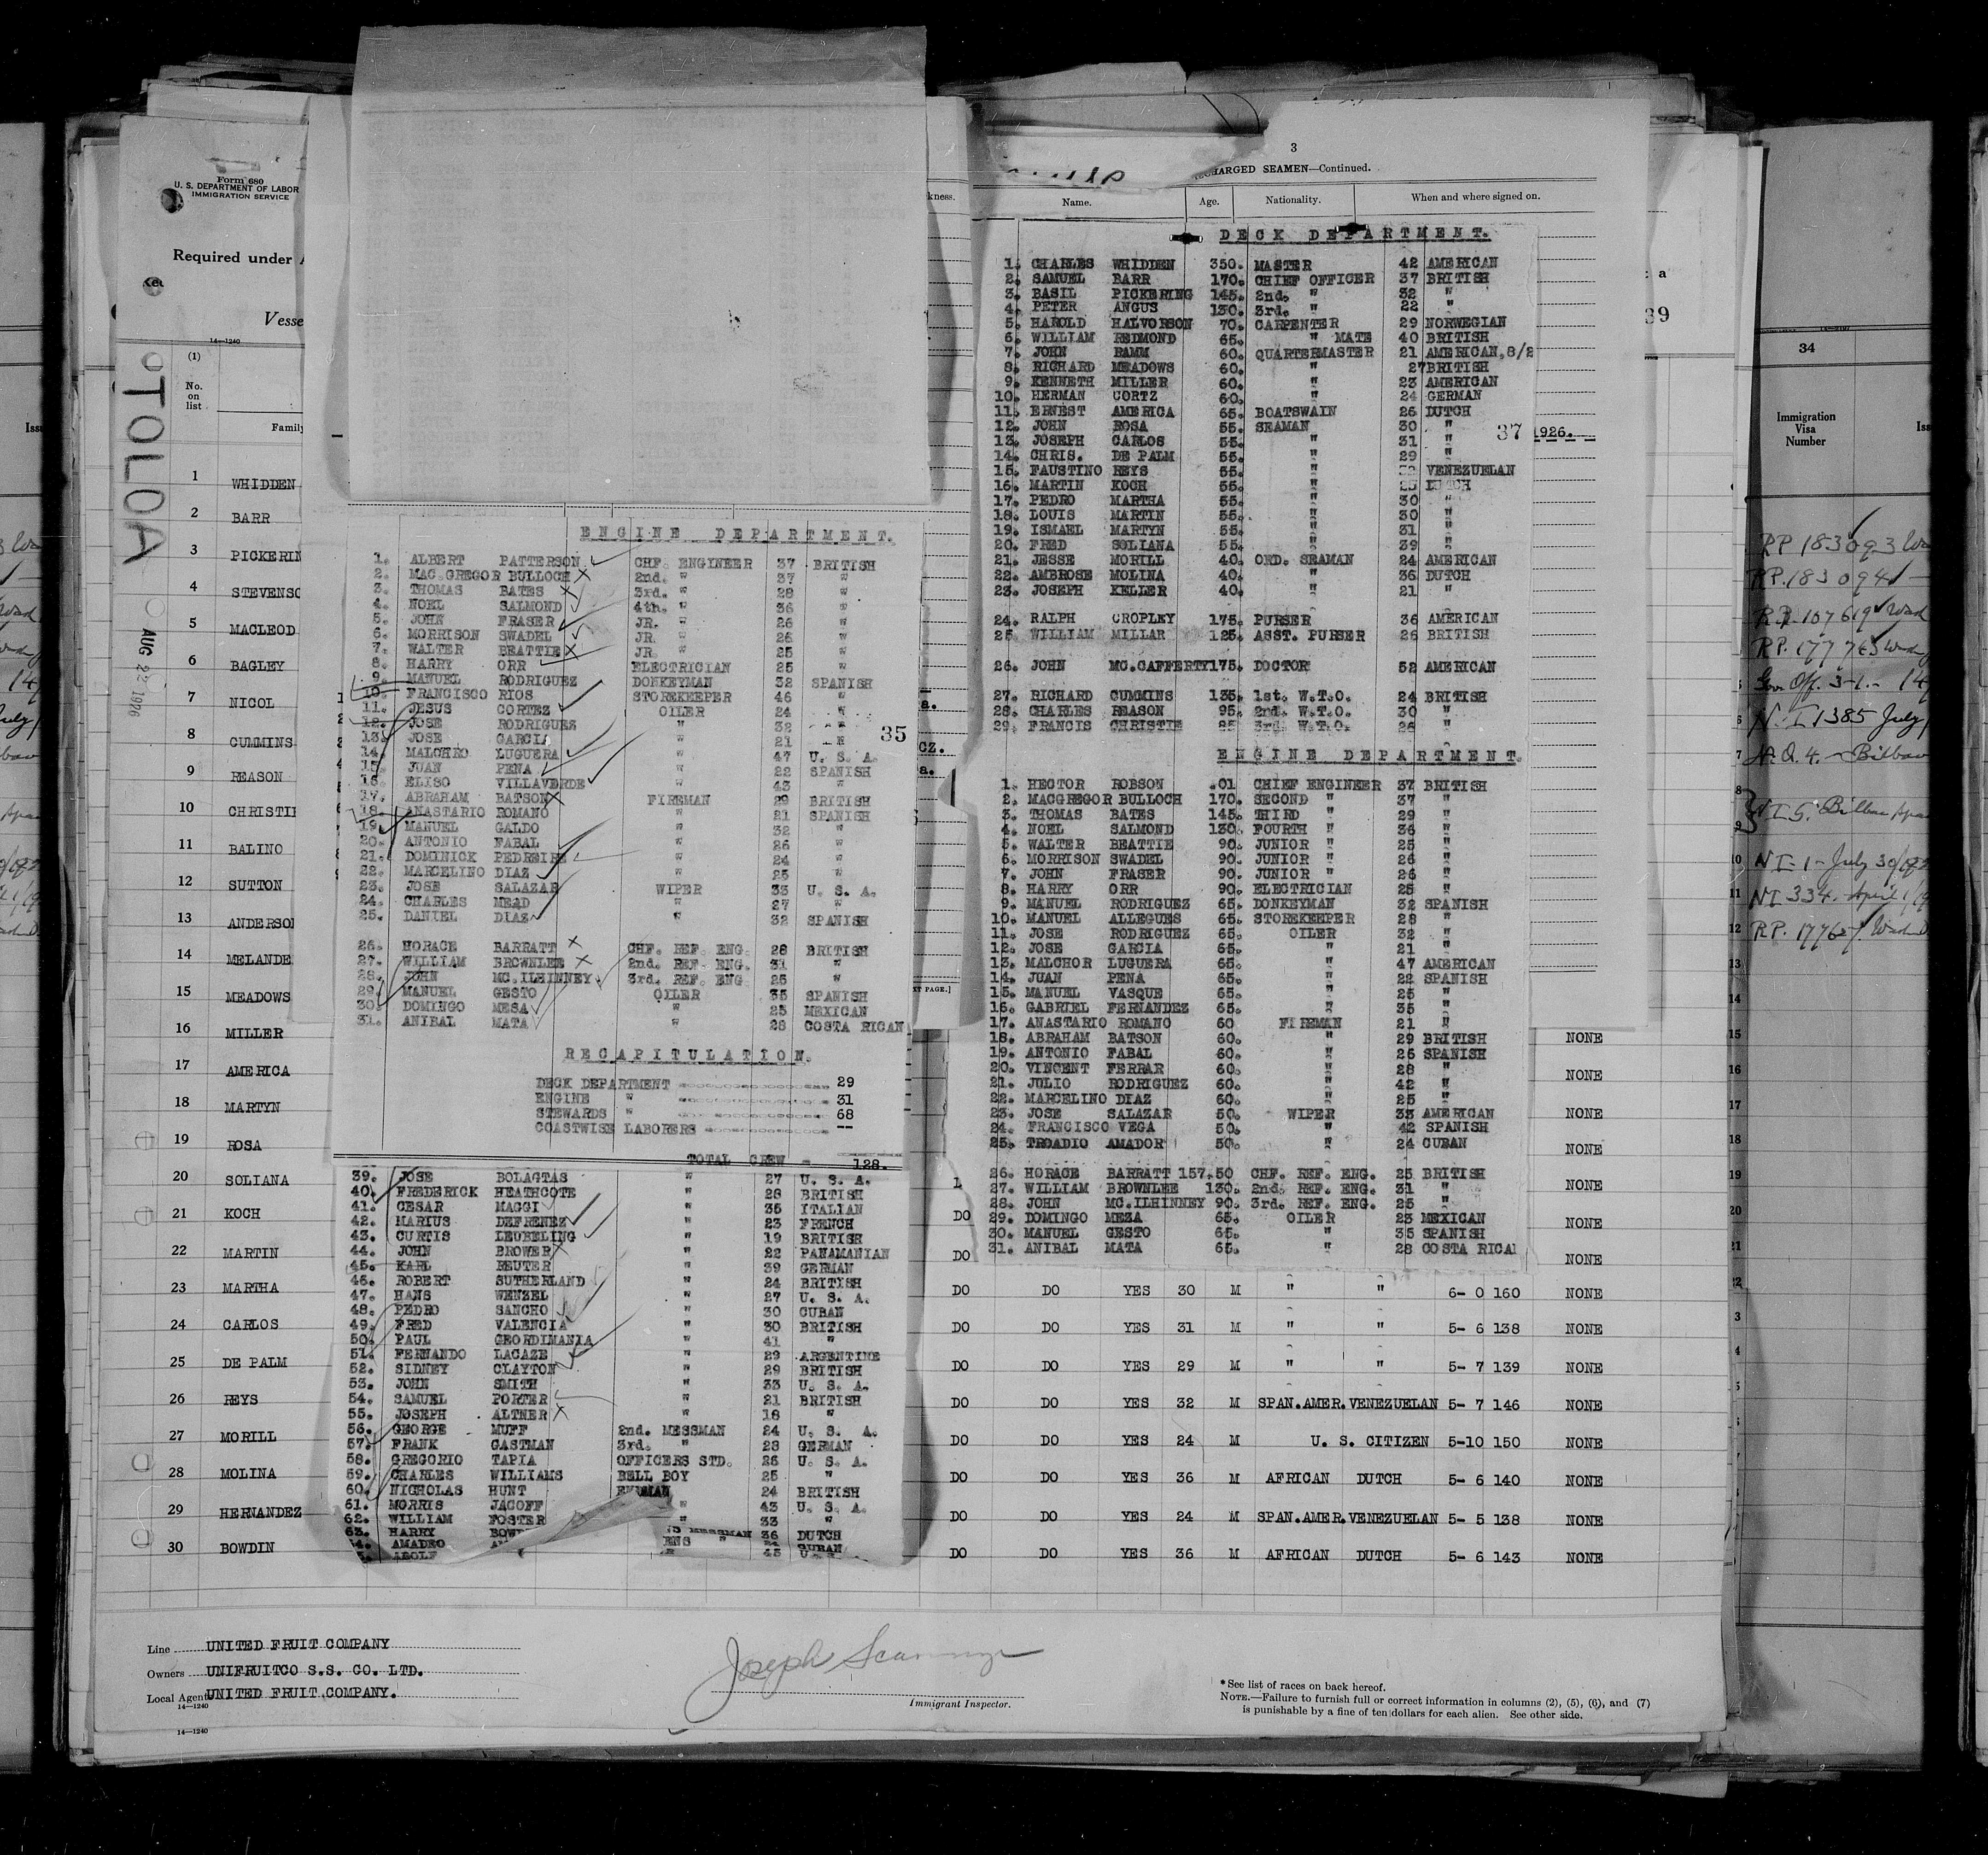 Form 680
U. S. DEPARTMENT OF LABOR
IMMIGRATION SERVICE
Required under
Vesse
14—1240
TOLOA
AUG 22 1926
(1)
No. on list
Family
1 WHIDDEN
2 BARR
3 PICKERIN
4 STEVENSO
5 MACLEOD
6 BAGLEY
7 NICOL
8 CUMMINS
9 REASON
10 CHRISTIE
11 BALINO
12 SUTTON
13 ANDERSON
14 MELANDE
15 MEADOWS
16 MILLER
17 AMERICA
18 MARTYN
19 ROSA
20 SOLIANA
21 KOCH
22 MARTIN
23 MARTHA
24 CARLOS
25 DE PALM
26 REYS
27 MORILL
28 MOLINA
29 HERNANDEZ
30 BOWDIN
Line UNITED FRUIT COMPANY
Owners UNIFRUITCO S.S. CO. LTD.
Local Agent UNITED FRUIT COMPANY.
14—1240
14—1240
ENGINE DEPARTMENT.
1. ALBERT PATTERSON CHF. ENGINEER 37 BRITISH
2. MAC.GREGOR BULLOCH 2nd. " 37 "
3. THOMAS BATES 3rd. " 28 "
4. NOEL SALMOND 4th. " 36 "
5. JOHN FRASER JR. " 26 "
6. MORRISON SWADEL JR. " 26 "
7. WALTER BEATTIE JR. " 25 "
8. HARRY ORR ELECTRICIAN 25 "
9. MANUEL RODRIGUEZ DONKEYMAN 32 SPANISH
10. FRANCISCO RIOS STOREKEEPER 46 "
11. JESUS CORTEZ OILER 24 "
12. JOSE RODRIGUEZ " 32 "
13. JOSE GARCIA " 21 "
35
14. MALCHRO LUGUERA " 47 U. S. A.
15. JUAN PENA " 22 SPANISH
16. ELISO VILLAVERDE " 43 "
17. ABRAHAM BATSON FIREMAN 29 BRITISH
18. ANASTARIO ROMANO " 21 SPANISH
19. MANUEL GALDO " 32 "
20. ANTONIO FABAL " 26 "
21. DOMINICK PEDREIRE " 24 "
22. MARCELINO DIAZ " 25 "
23. JOSE SALAZAR WIPER 33 U. S. A.
24. CHARLES MEAD " 27 "
25. DANIEL DIAZ " 32 SPANISH
26. HORACE BARRATT CHF. REF. ENG. 28 BRITISH
27. WILLIAM BROWNLEE 2nd. REF. ENG. 31 "
28. JOHN MC.ILHINNEY 3rd. REF. ENG. 25 "
29. MANUEL GESTO OILER 35 SPANISH
30. DOMINGO MESA " 25 MEXICAN
31. ANIBAL MATA " 28 COSTA RICAN
RECAPITULATION.
DECK DEPARTMENT 29
ENGINE " 31
STEWARDS " 68
COASTWISE LABORERS --
TOTAL CREW - 128.
39. JOSE BOLAGTAS " 27 U. S. A.
40. FREDERICK HEATHCOTE " 28 BRITISH
41. CESAR MAGGI " 35 ITALIAN
42. MARIUS DEFRENEZ " 23 FRENCH
43. CURTIS LEUBELING " 19 BRITISH
44. JOHN BROWER " 22 PANAMANIAN
45. KARL REUTER " 39 GERMAN
46. ROBERT SUTHERLAND " 24 BRITISH
47. HANS WENZEL " 27 U. S. A.
48. PEDRO SANCHO " 30 CUBAN
49. FRED VALENCIA " 30 BRITISH
50. PAUL GEORDIMANIA " 41 "
51. FERNANDO LACAZE " 29 ARGENTINE
52. SIDNEY CLAYTON " 29 BRITISH
53. JOHN SMITH " 33 U. S. A.
54. SAMUEL PORTER " 21 BRITISH
55. JOSEPH ALTNER " 18 "
56. GEORGE MUFF 2nd. MESSMAN 24 U. S. A.
57. FRANK GASTMAN 3rd. " 28 GERMAN
58. GREGORIO TAPIA OFFICERS STD. 26 U. S. A.
59. CHARLES WILLIAMS BELL BOY 25 "
60. NICHOLAS HUNT 24 BRITISH
61. MORRIS JACOFF " 43 U. S. A.
62. WILLIAM FOSTER " 33 "
63. HARRY BOW MESSMAN 36 DUTCH
AMADRO ENS " CUBAN
ADOLF " 45 U.
3
CHARGED SEAMEN—Continued.
Name. Age. Nationality. When and where signed on.
DECK DEPARTMENT.
1. CHARLES WHIDDEN 350. MASTER 42 AMERICAN
2. SAMUEL BARR 170. CHIEF OFFICER 37 BRITISH
3. BASIL PICKERING 145. 2nd. " 32 "
4. PETER ANGUS 130. 3rd. " 22 "
5. HAROLD HALVORSON 70. CARPENTER 29 NORWEGIAN
6. WILLIAM REDMOND 65. " MATE 40 BRITISH
7. JOHN RAMM 60. QUARTERMASTER 21 AMERICAN,8/2
8. RICHARD MEADOWS 60. " 27 BRITISH
9. KENNETH MILLER 60. " 23 AMERICAN
10. HERMAN CORTZ 60. " 24 GERMAN
11. ERNEST AMERICA 65. BOATSWAIN 26 DUTCH
12. JOHN ROSA 55. SEAMAN 30 "
37 1926.
13. JOSEPH CARLOS 55. " 31 "
14. CHRIS. DE PALM 55. " 29 "
15. FAUSTINO REYS 55. " 32 VENEZUELAN
16. MARTIN KOCH 55. " 25 DUTCH
17. PEDRO MARTHA 55. " 30 "
18. LOUIS MARTIN 55. " 30 "
19. ISMAEL MARTYN 55. " 31 "
20. FRED SOLIANA 55. " 39 "
21. JESSE MORILL 40. ORD. SEAMAN 24 AMERICAN
22. AMBROSE MOLINA 40. " 36 DUTCH
23. JOSEPH KELLER 40. " 21 "
24. RALPH CROPLEY 175. PURSER 36 AMERICAN
25 WILLIAM MILLAR 125. ASST. PURSER 26 BRITISH
26. JOHN MC.CAFFERTY 175. DOCTOR 52 AMERICAN
27. RICHARD CUMMINS 135. 1st. W.T.O. 24 BRITISH
28. CHARLES REASON 95. 2nd. W.T.O. 30 "
29. FRANCIS CHRISTIE 25 3rd. W.T.O. 26 "
ENGINE DEPARTMENT.
1. HECTOR ROBSON .01 CHIEF ENGINEER 37 BRITISH
2. MACGREGOR BULLOCH 170. SECOND " 37 "
3. THOMAS BATES 145. THIRD " 29 "
4. NOEL SALMOND 130. FOURTH " 36 "
5. WALTER BEATTIE 90. JUNIOR " 25 "
6. MORRISON SWADEL 90. JUNIOR " 26 "
7. JOHN FRASER 90. JUNIOR " 26 "
8. HARRY ORR 90. ELECTRICIAN 25 "
9. MANUEL RODRIGUEZ 65. DONKEYMAN 32 SPANISH
10. MANUEL ALLEGUES 65. STOREKEEPER 28 "
11. JOSE RODRIGUEZ 65. OILER 32 "
12. JOSE GARCIA 65. " 21 "
13. MALCHOR LUGUERA 65. " 47 AMERICAN
14. JUAN PENA 65. " 22 SPANISH
15. MANUEL VASQUE 65. " 25 "
16. GABRIEL FERNANDEZ 65. " 35 "
17. ANASTARIO ROMANO 60 FIREMAN 21 "
18. ABRAHAM BATSON 60. " 29 BRITISH
19. ANTONIO FABAL 60. " 26 SPANISH
20. VINCENT FERRAR 60. " 28 "
21. JULIO RODRIGUEZ 60. " 42 "
22. MARCELINO DIAZ 60. " 25 "
23. JOSE SALAZAR 50. WIPER 33 AMERICAN
24. FRANCISCO VEGA 50. " 42 SPANISH
25. TROADIO AMADOR 50. " 24 CUBAN
26. HORACE BARRATT 157.50 CHF. REF. ENG. 25 BRITISH
27. WILLIAM BROWNLEE 130. 2nd. REF. ENG. 31 "
28. JOHN MC.ILHINNEY 90. 3rd. REF. ENG. 25 "
29. DOMINGO MEZA 65. OILER 23 MEXICAN
30. MANUEL GESTO 65. " 35 SPANISH
31. ANIBAL MATA 65. " 28 COSTA RICA
NONE
NONE
NONE
NONE
NONE
NONE
NONE
DO DO YES 30 M " " 6- 0 160 NONE
DO DO YES 31 M " " 5- 6 138 NONE
DO DO YES 29 M " " 5- 7 139 NONE
DO DO YES 32 M SPAN.AMER.VENEZUELAN 5- 7 146 NONE
DO DO YES 24 M U. S. CITIZEN 5-10 150 NONE
DO DO YES 36 M AFRICAN DUTCH 5- 6 140 NONE
DO DO YES 24 M SPAN.AMER.VENEZUELAN 5- 5 138 NONE
DO DO YES 36 M AFRICAN DUTCH 5- 6 143 NONE
Immigrant Inspector.
Joseph
*See list of races on back hereof.
NOTE.—Failure to furnish full or correct information in columns (2), (5), (6), and (7)
is punishable by a fine of ten dollars for each alien. See other side.
34
Immigration Visa Number
RP 183093
RP. 183094
RP. 107619
RP. 177763
Gov. Off. 3-1.- 14
N-I 1385 July
N.Q. 4. - Bilbao
N I - 1 - July 30/
NI 334. April 1/
RP. 17762